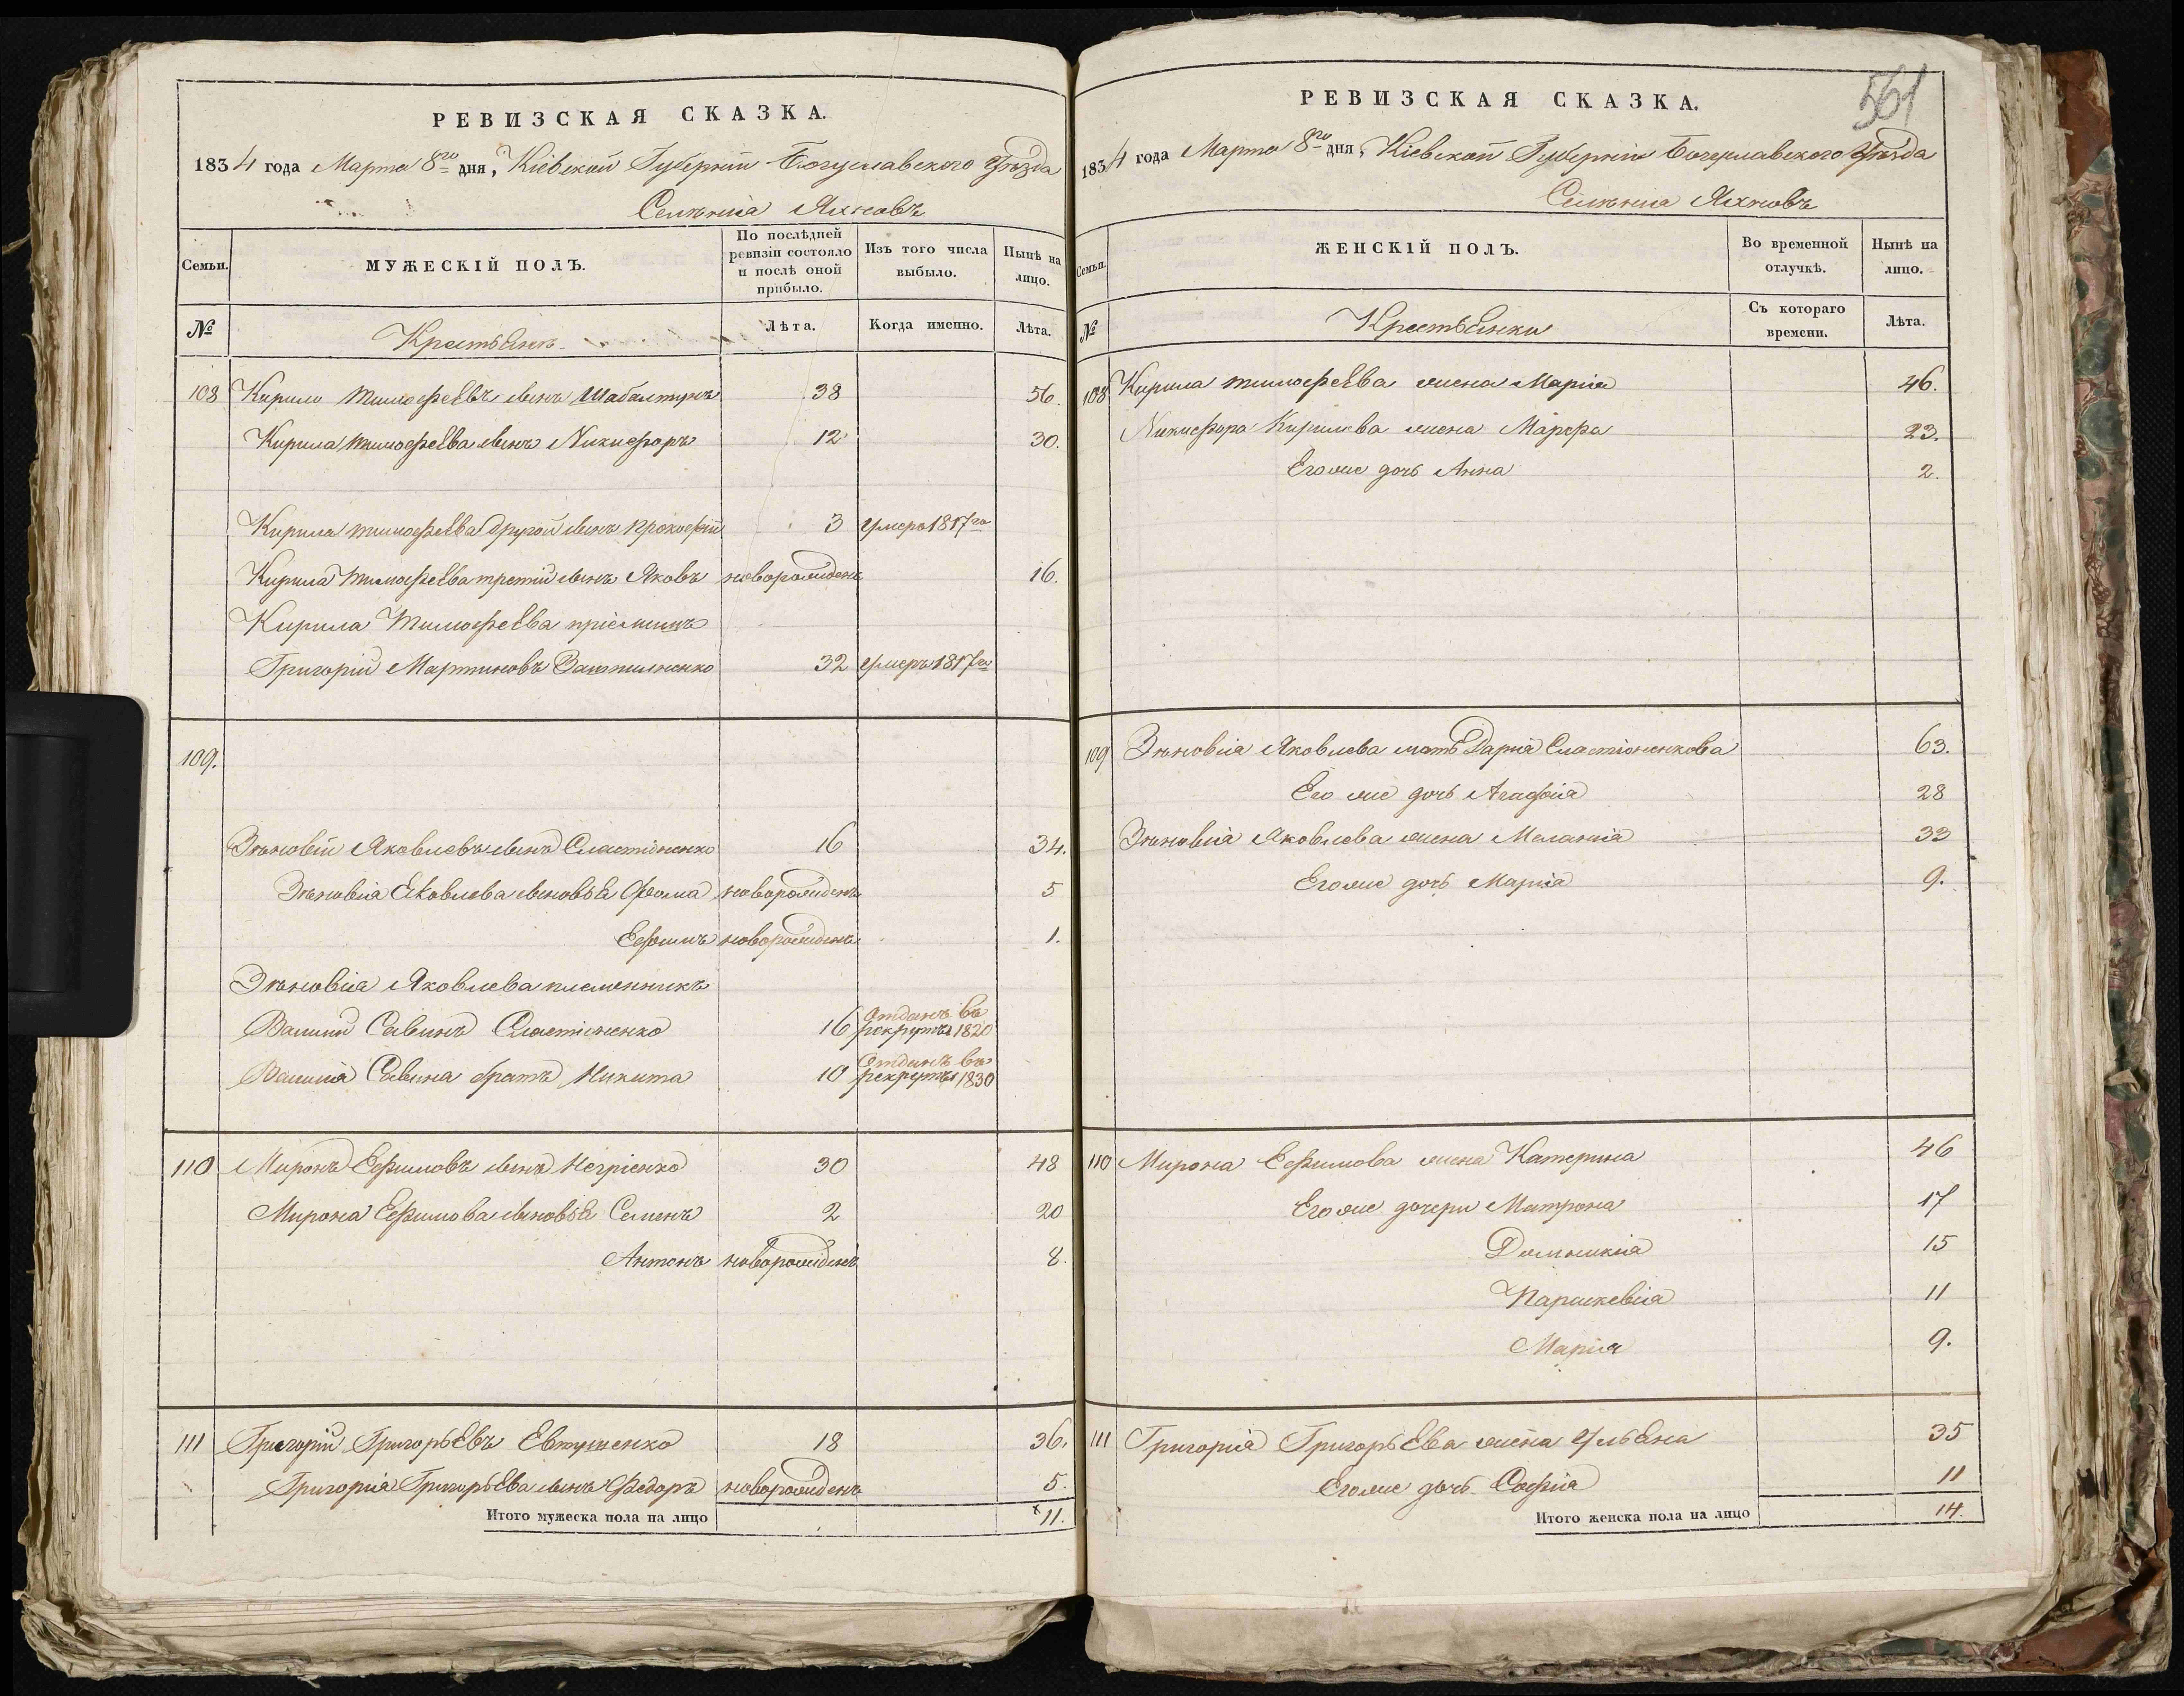 РЕВИЗСКАЯ СКАЗКА.
1834 года Марта 8го дня, Кіевской Губерніи Богуславского Уѣзда
Селѣнія Яхновъ
Семьи.
МУЖЕСКІЙ ПОЛЪ.
По послѣдней ревизіи состояло и послѣ оной прибыло.
Изъ того числа выбыло.
Нынѣ на лицо.
№
Крестьянъ
Лѣта.
Когда именно.
Лѣта.
108 Кирило Тимофеевъ сынъ Шабалтунъ 38 56.
Кирила Тимофеева сынъ Никифоръ 12 30.
Кирила Тимофеева другой сынъ Прокофій 3 умеръ 1817го
Кирила Тимофеева третій сынъ Яковъ новорожденъ 16.
Кирила Тимофеева пріемышъ
Григорій Мартиновъ 32 умеръ 1817го
109.
Зѣновій Яковлевъ сынъ Сластіоненко 16 34.
Зѣновія Яковлева сыновья Фома новорожденъ 5
Ефимъ новорожденъ 1.
Зѣновія Яковлева племянникъ
Савинъ Сластіоненко 16 отданъ въ рекруты 1820
Савина братъ Никита 10 отданъ въ рекруты 1830
110 Миронъ Ефимовъ сынъ Негріенко 30 48
Мирона Ефимова сыновья Семенъ 2 20
Антонъ новорожденъ 8.
111 Григорій Григорьевъ Евтушенко 18 36.
Григорія Григорьева сынъ Федоръ новорожденъ 5.
Итого мужеска пола на лицо 11.
561
РЕВИЗСКАЯ СКАЗКА.
1834 года Марта 8го дня, Кіевской Губерніи Богуславского Уѣзда
Селѣнія Яхновъ
Семьи.
ЖЕНСКІЙ ПОЛЪ.
Во временной отлучкѣ.
Нынѣ на лицо.
№
Крестьянки
Съ котораго времени.
Лѣта.
108 Кирила Тимофеева жена Марія 46.
Никифора Кирилова жена Марфа 23.
Его же дочь Анна 2.
109 Зѣновія Яковлева мать Дарія Сластіоненкова 63.
Его же дочь Агафія 28
Зѣновія Яковлева жена Меланія 33
Его же дочь Марія 9.
110 Мирона Ефимова жена Катерина 46
Его же дочери Матрона 17
Домникія 15
Параскевія 11
Марія 9.
111 Григорія Григорьева жена Ульяна 35
Его же дочь Софія 11
Итого женска пола на лицо 14.